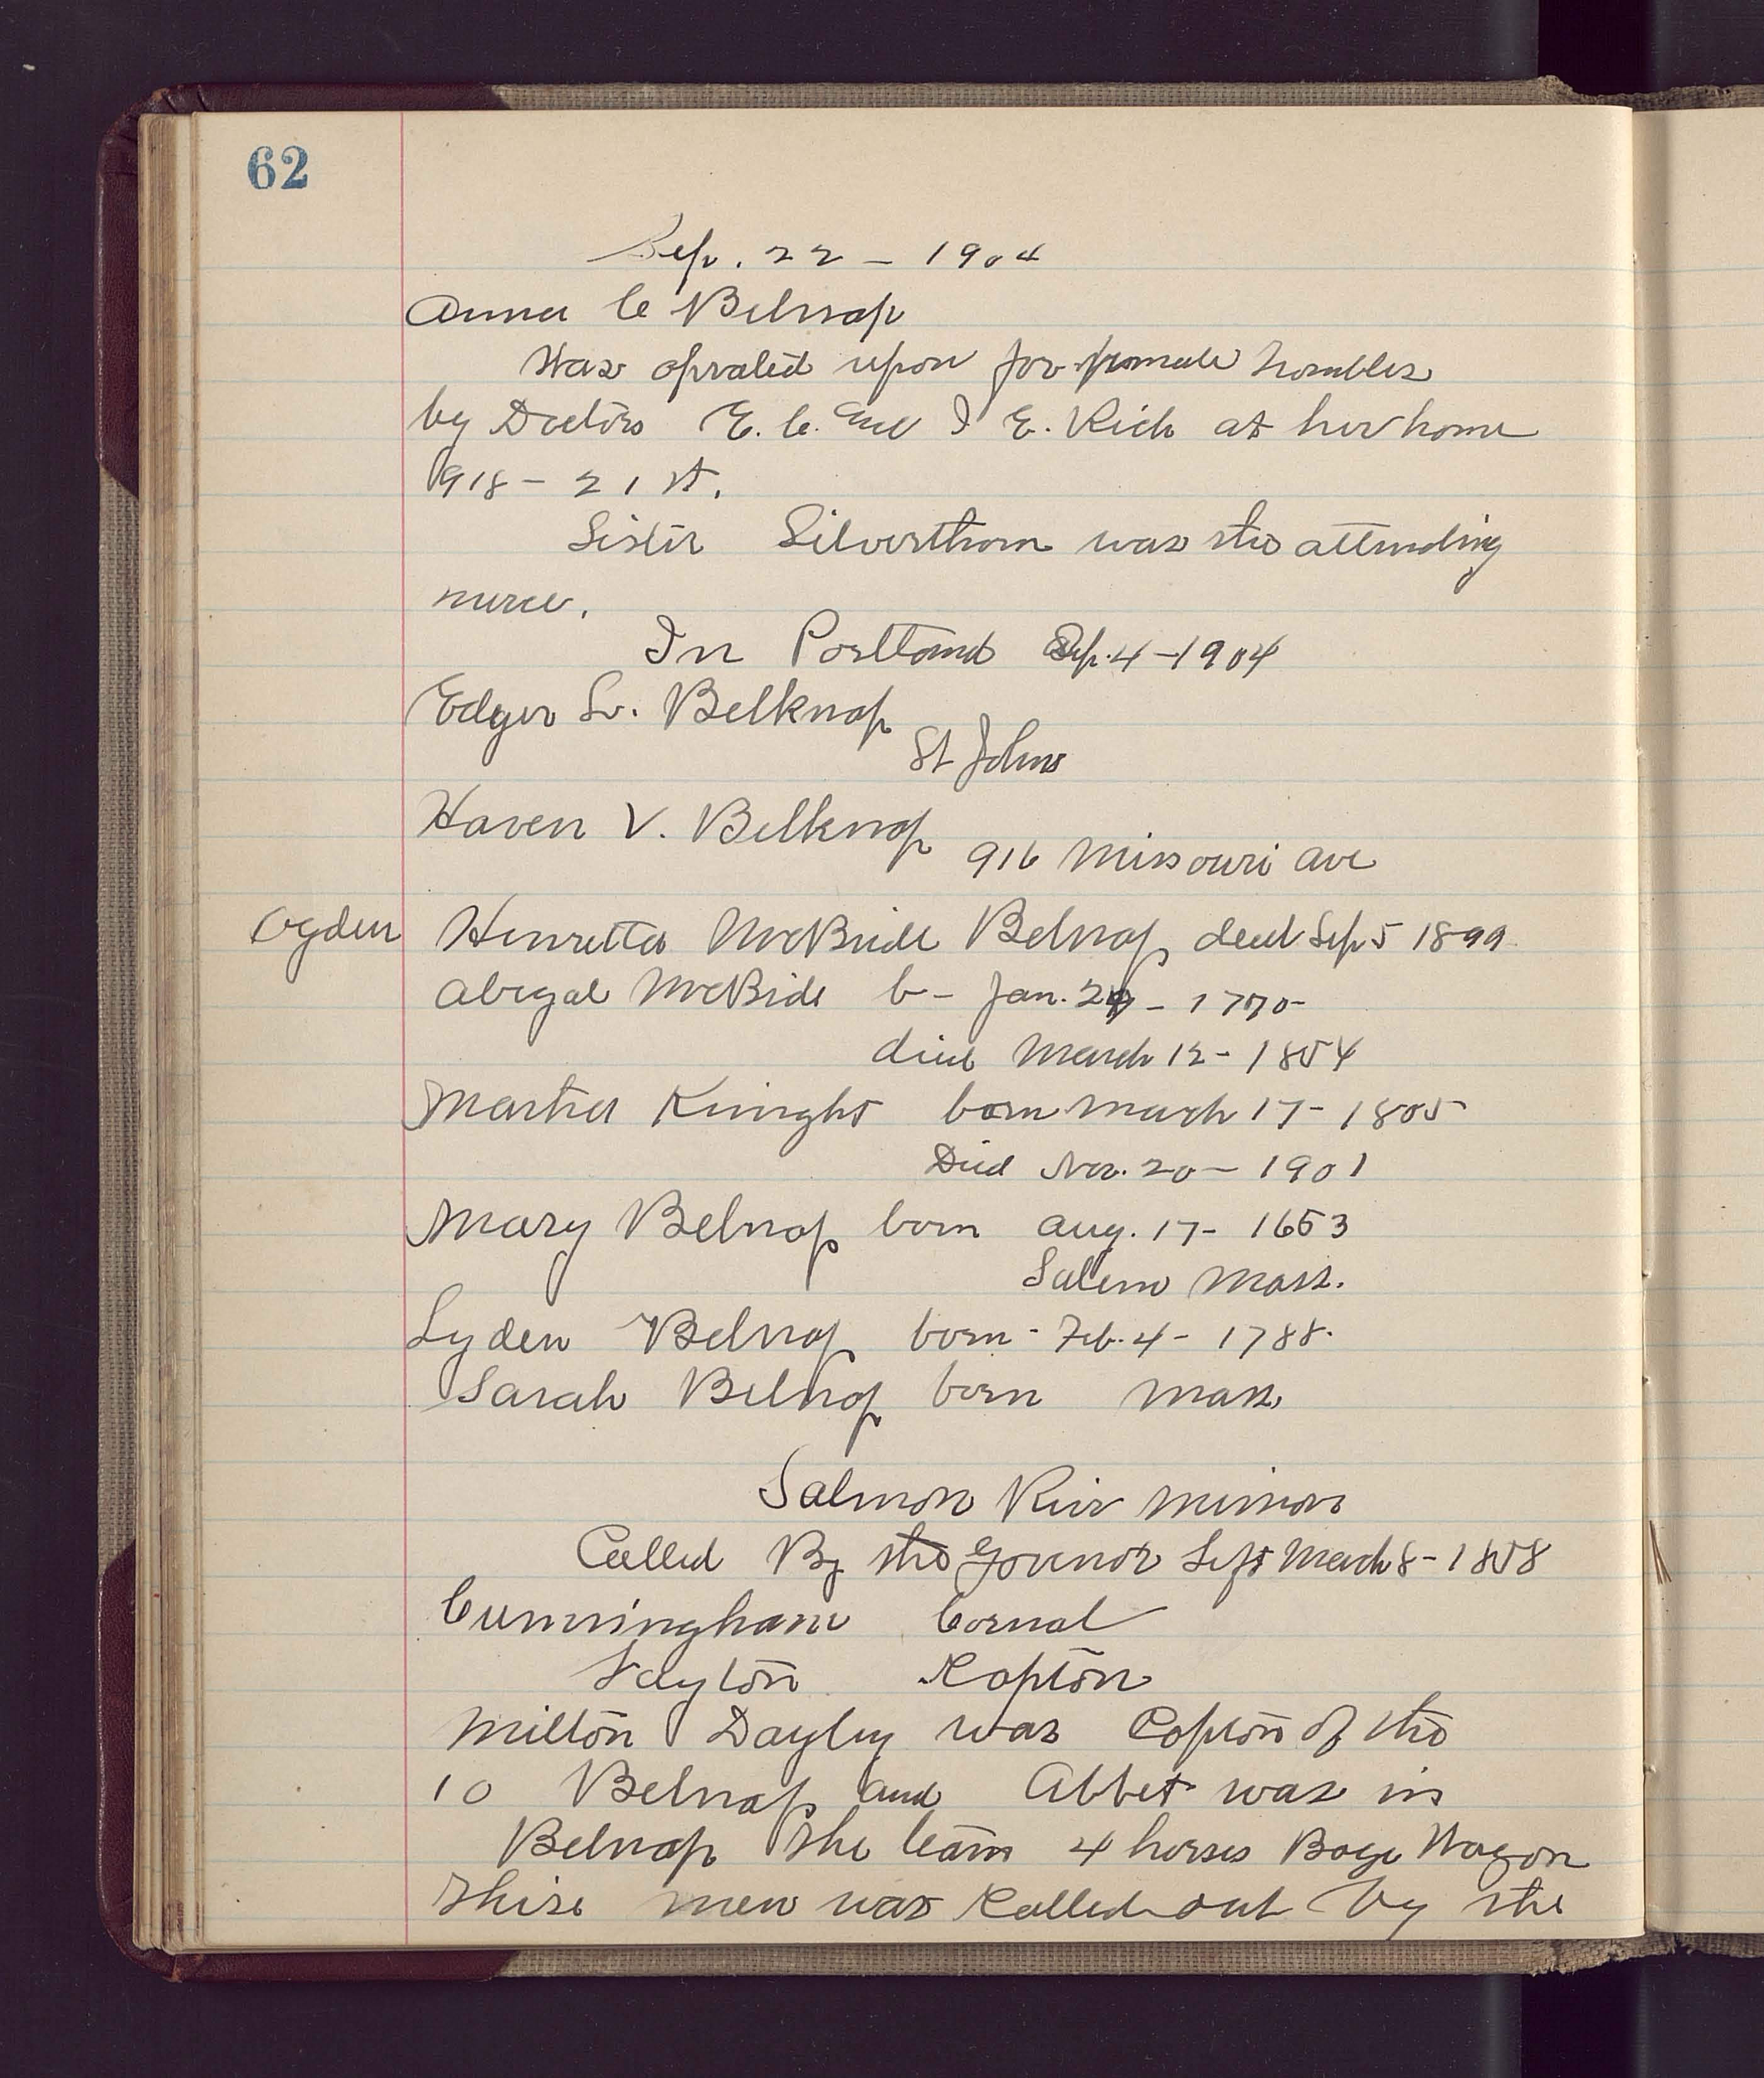 62
Sep. 22 - 1904
Anna C Belnap
Was oprated upon for female troubles
by Doctors E. C. and I E. Rich at her home
918 - 21 st.
Sister Silverthorn was the attending
nurce.
In Portland Sep. 4 - 1904
Edger L. Belknap
St Johns
Haven V. Belknap
916 Missouri ave
Ogden Henretta McBride Belnap died Sep 5 1899
Abegal McBide b - Jan. 29 - 1770 -
died March 12 - 1854
Martha Kinight born March 17 - 1805
Died Nov. 20 - 1901
Mary Belnap born Aug. 17 - 1653
Salem Mass.
Lyden Belnap born - Feb. 4 - 1788.
Sarah Belnap born Mass
Salmon River Mission
Called By the Govenor Left March 8 - 1858
Cunningham Cornal
Layton Kapton
Milton Dayley was Capton of the
10 Belnap and Abbet was in
Belnap the team 4 horses Bage Wagon
Thise men was Called out by the